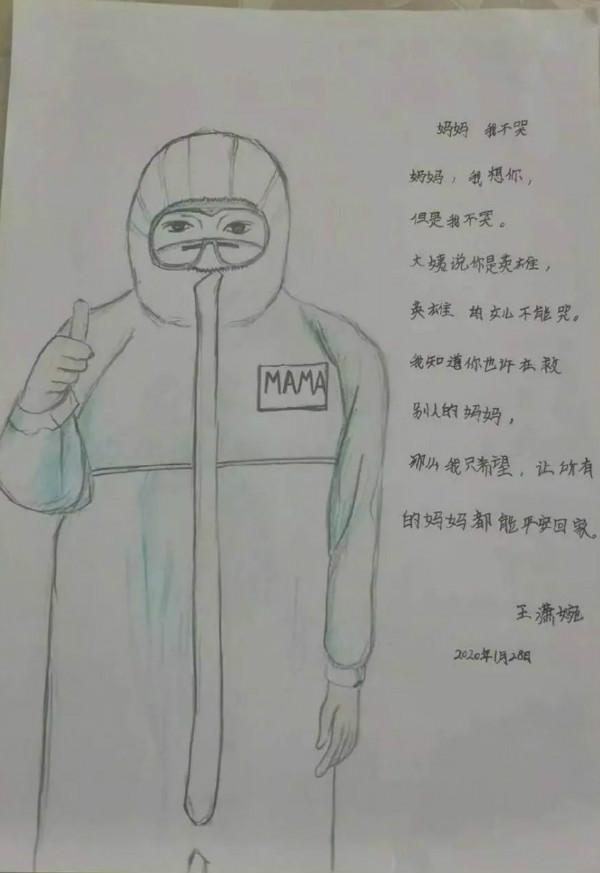 妈妈 我不哭
妈妈，我想你，
但是我不哭。
大姨说你是英雄，
英雄的女儿不能哭。
我知道你也许在救
别人的妈妈，
那么我只希望，让所有
的妈妈都能平安回家。
MAMA
王潇婉
2020年1月28日